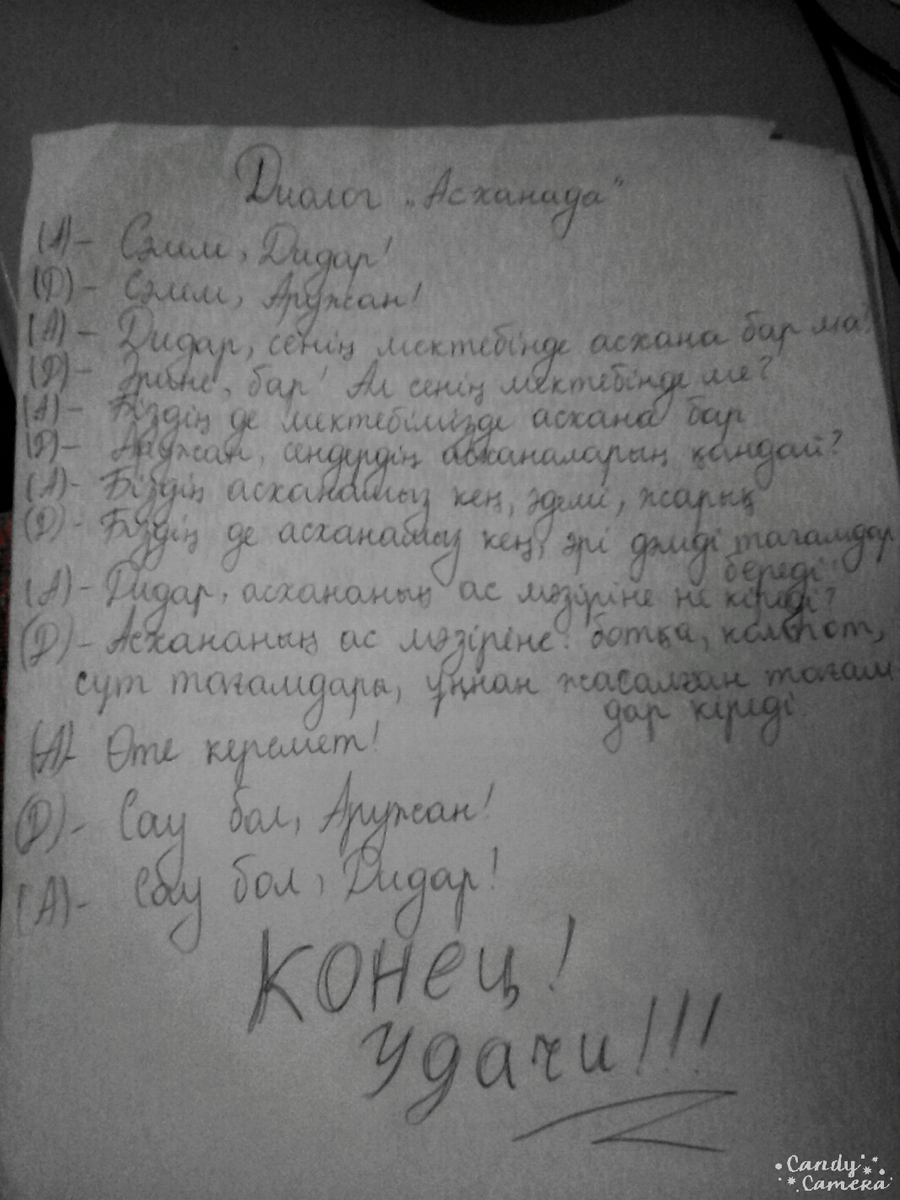 Диалог „Асханада"
(А)- Сәлем, Дидар!
(Д)- Сәлем, Аружан!
(А)- Дидар, сенің мектебінде асхана бар ма?
(Д)- Әрине, бар! Ал сенің мектебінде ме?
(А)- Біздің де мектебімізде асхана бар
(Д)- Аружан, сендердің асханаларың қандай?
(А)- Біздің асханамыз кең, әдемі, жарық
(Д)- Біздің де асханамыз кең, әрі дәмді тағамдар
береді
(А)- Дидар, асхананың ас мәзіріне не кіреді?
(Д)- Асхананың ас мәзіріне: ботқа, компот,
сүт тағамдары, ұннан жасалған тағам
дар кіреді
(А)- Өте керемет!
(Д)- Сау бол, Аружан!
(А)- Сау бол, Дидар!
Конец!
Удачи!!!
Candy
Camera